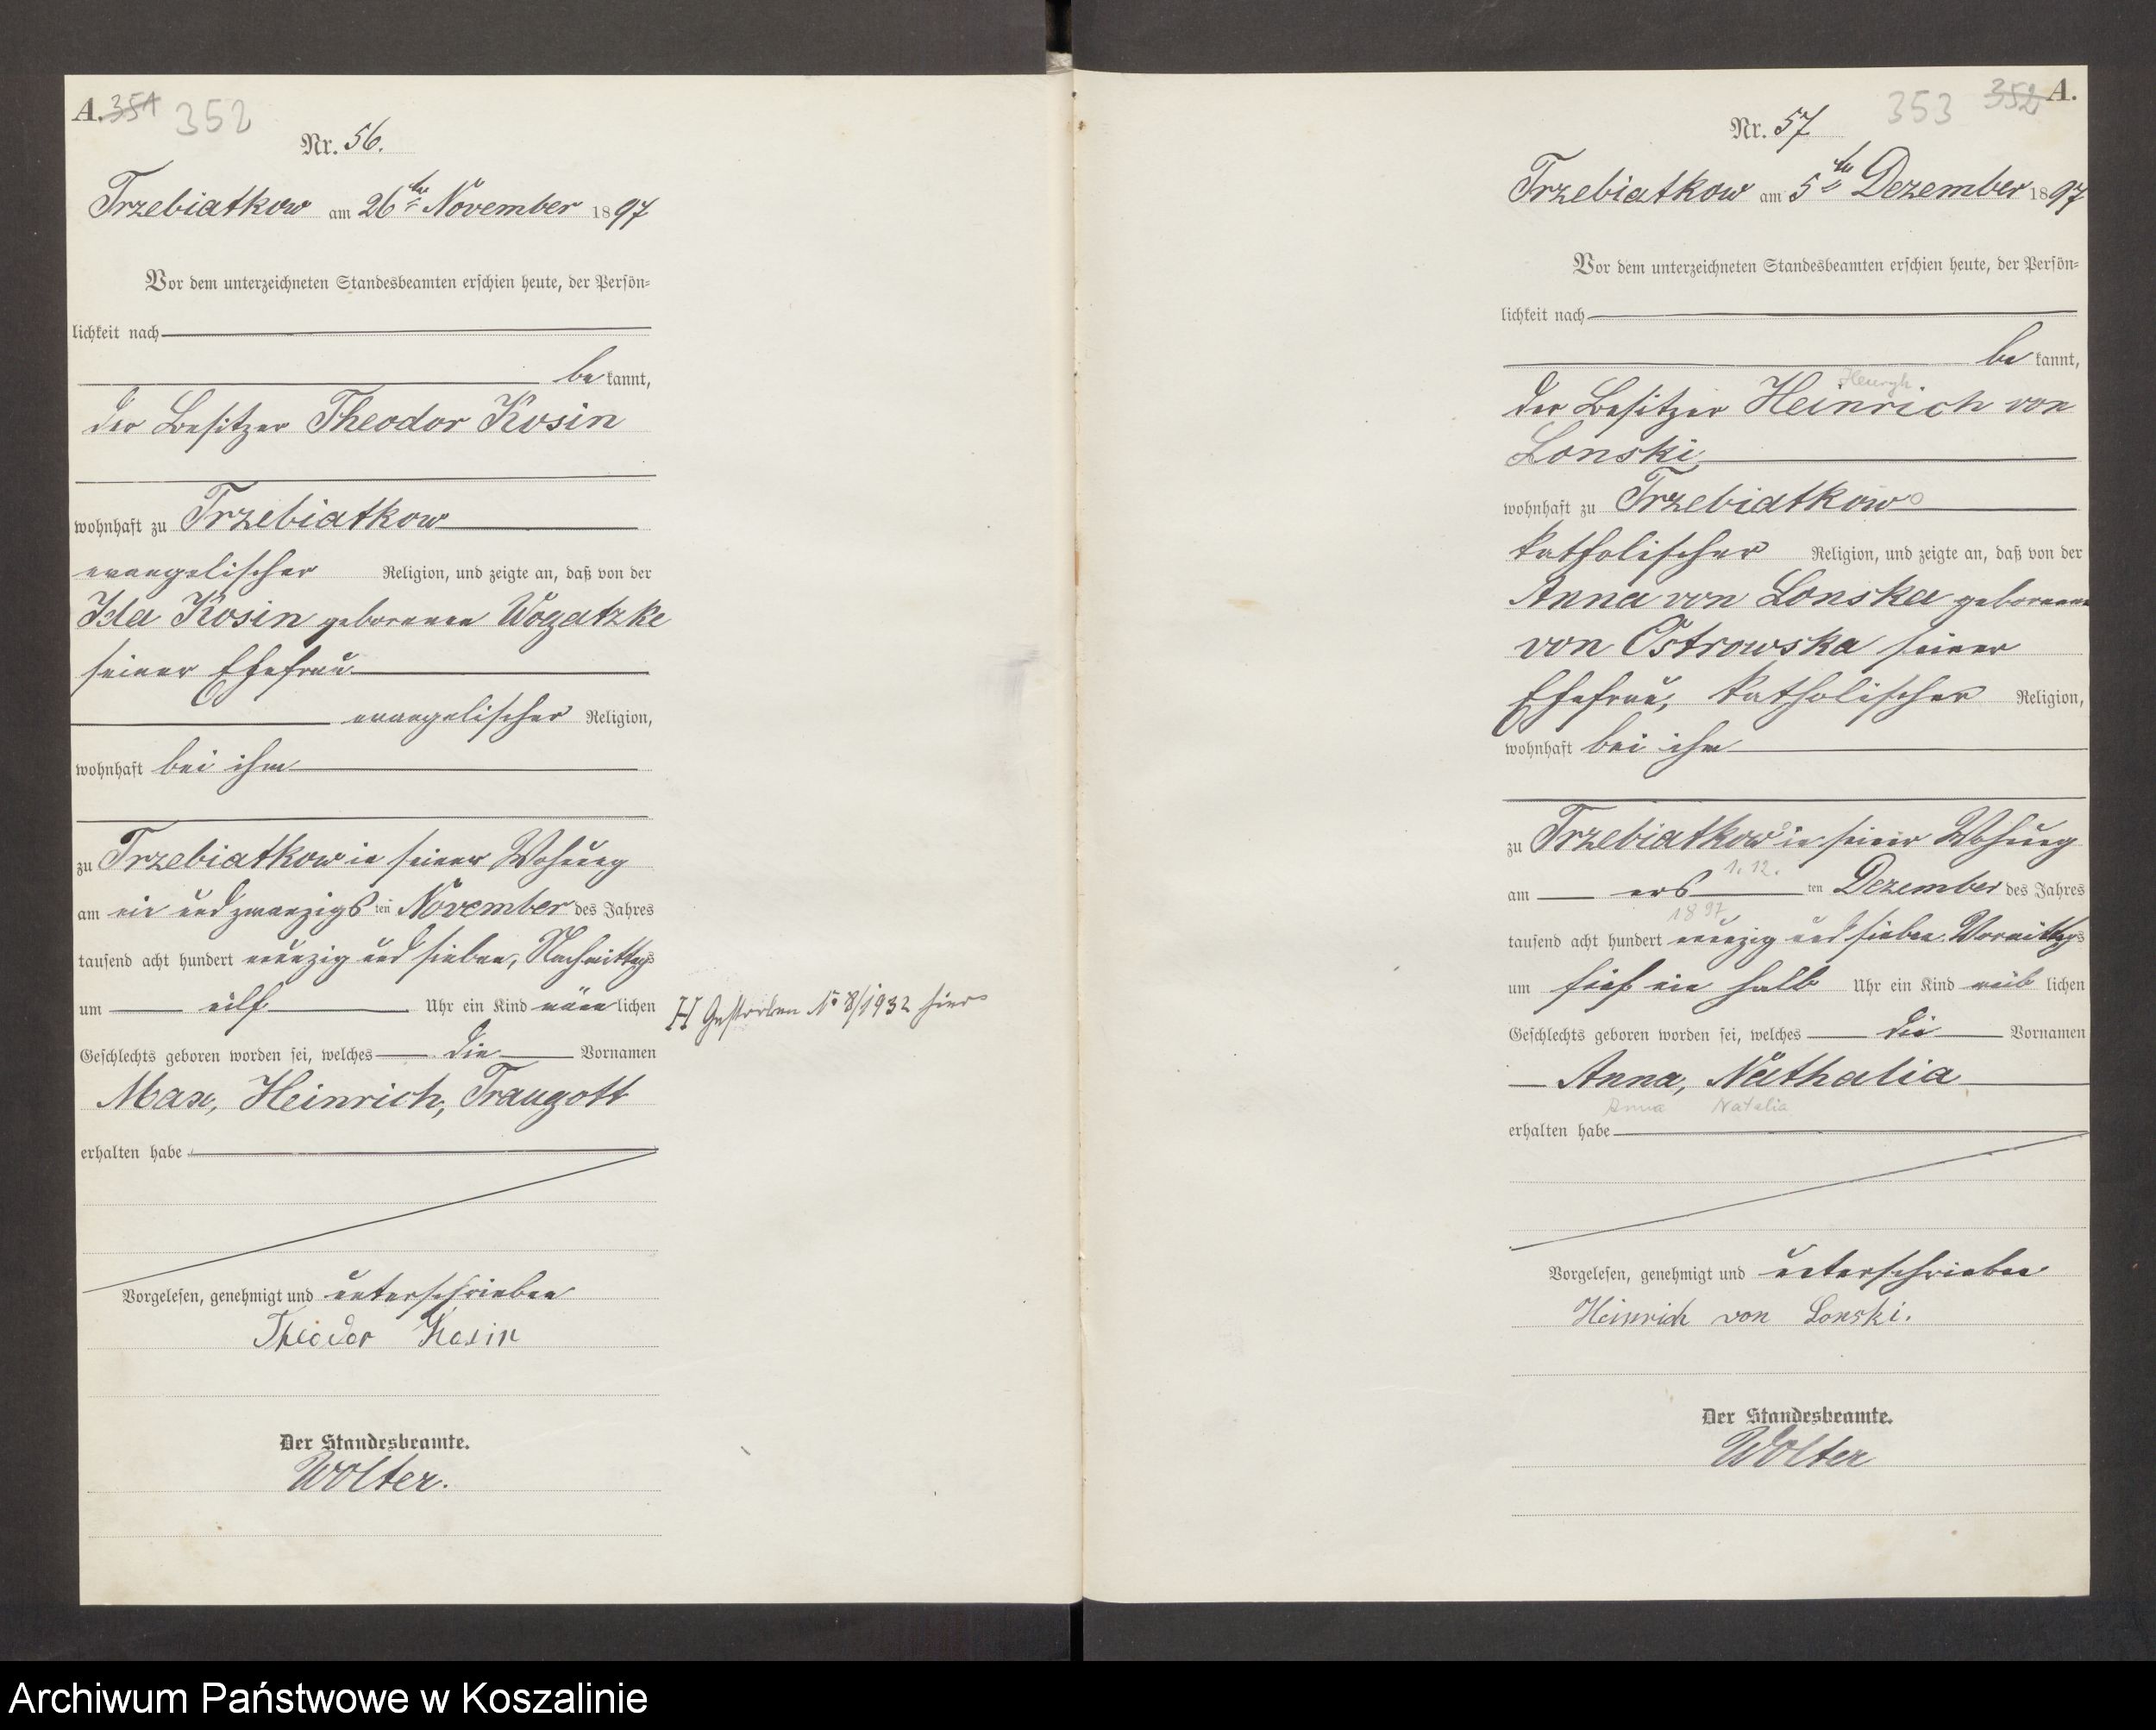 A. 351 352
Nr. 56.
Trzebiatkow am 26ten November 1897
Vor dem unterzeichneten Standesbeamten erschien heute, der Persön-
lichkeit nach
be kannt,
der Besitzer Theodor Kosin
wohnhaft zu Trzebiatkow
evangelischer Religion, und zeigte an, daß von der
Ida Kosin geborenen Wogatzke
seiner Ehefrau
evangelischer Religion,
wohnhaft bei ihm
zu Trzebiatkow in seiner Wohnung
am ein und zwanzigsten November des Jahres
tausend acht hundert neunzig und sieben, Nachmittags
um eilf Uhr ein Kind männlichen
Geschlechts geboren worden sei, welches die Vornamen
Max, Heinrich, Traugott
erhalten habe
Vorgelesen, genehmigt und unterschrieben
Theodor Kosin
Der Standesbeamte.
Wolter.
H Gestorben No 8/1932 hier
353 352 A.
Nr. 57
Trzebiatkow am 5ten Dezember 1897
Vor dem unterzeichneten Standesbeamten erschien heute, der Persön-
lichkeit nach
be kannt,
Henryk
der Besitzer Heinrich von
Lonski
wohnhaft zu Trzebiatkow
katholischer Religion, und zeigte an, daß von der
Anna von Lonska geborenen
von Ostrowska seiner
Ehefrau, katholischer Religion,
wohnhaft bei ihm
zu Trzebiatkow in seiner Wohnung
1.12.
am ersten Dezember des Jahres
1897
tausend acht hundert neunzig und sieben Vormittags
um fünf ein halb Uhr ein Kind weiblichen
Geschlechts geboren worden sei, welches die Vornamen
Anna, Nathalia
Anna Natalia
erhalten habe
Vorgelesen, genehmigt und unterschrieben
Heinrich von Lonski.
Der Standesbeamte.
Wolter
Archiwum Państwowe w Koszalinie